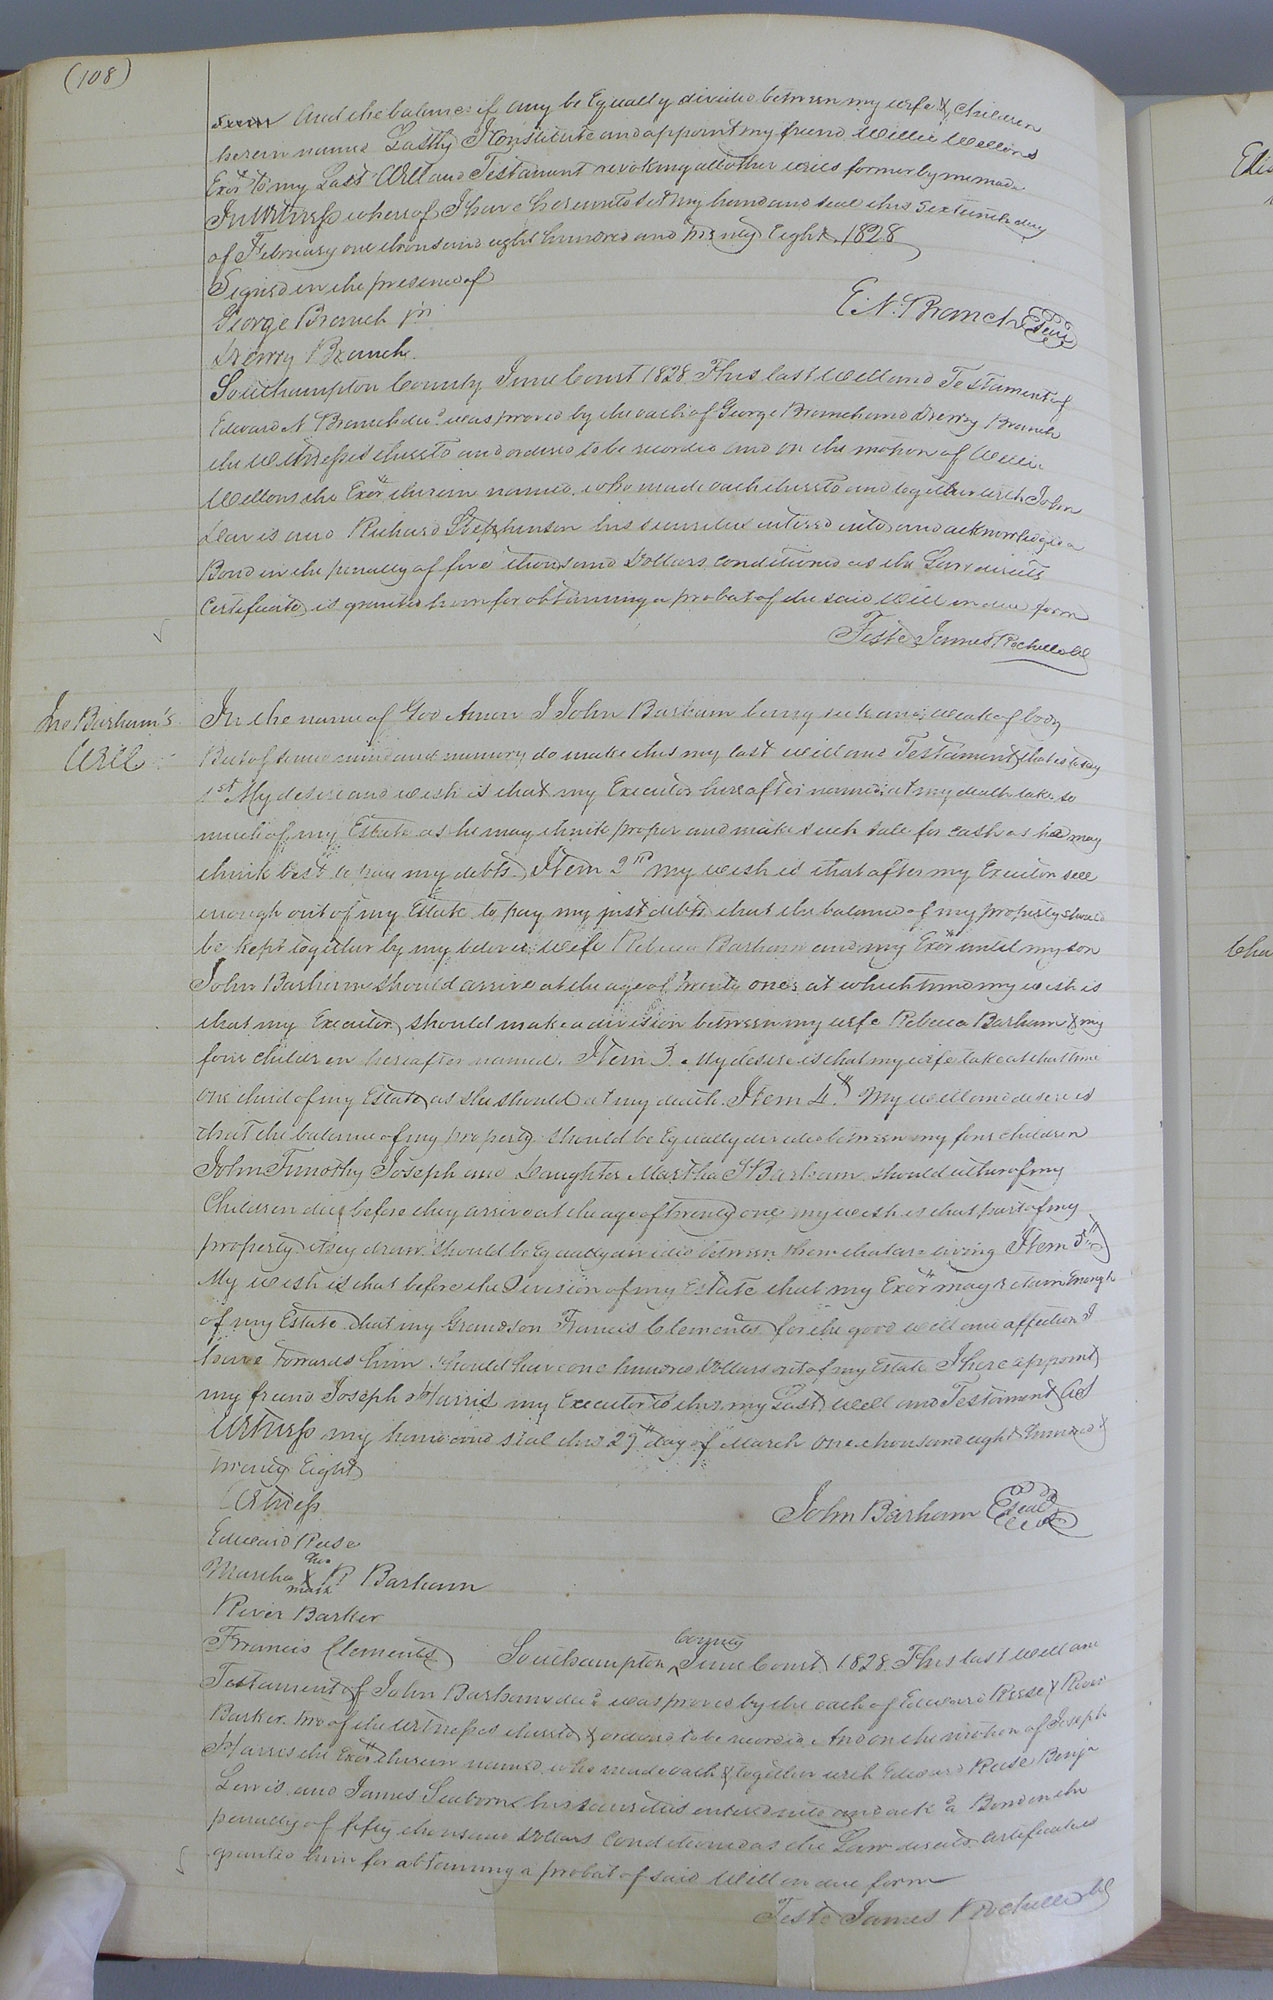 (108)
and the balance if any be Equally divided between my wife & children
herein named Lastly I Constitute and appoint my friend Willie Wellons
Exor to my Last Will and Testament revoking all other wills former by me made
In Witness whereof I have hereunto set my hand and seal this Sixteenth day
of February one thousand eight hundred and twenty Eight. 1828
Signed in the presence of
George Branch jr
E. N. Branch Seal
Drewry Branch.
Southampton County June Court 1828 This last Will and Testament of
Edward N Branch decd was proved by the oath of George Branch and Drewry Branch
the Witnesses thereto and ordered to be recorded and on the motion of Willie
Wellons the Exor therein named, who made oath thereto and together with John
Davis and Richard Stephenson his securities entered into and acknowledged a
Bond in the penalty of five thousand Dollars conditioned as the Law directs
Certificate is granted him for obtaining a probat of the said Will in due form
Teste James Rochelle Cl
Jno Barham's
Will
In the name of God Amen I John Barham being sick and weak of body
But of sound mind and memory do make this my last will and Testament that is to say
1st My desire and wish is that my Executor hereafter named at my death take so
much of my Estate as he may think proper and make such sale for cash as he may
think best to pay my debts. Item 2nd My wish is that after my Executor sell
enough out of my Estate to pay my just debts that the balance of my property should
be kept together by my beloved wife Rebeca Barham and my Exor until my son
John Barham should arrive at the age of twenty one at which time my wish is
that my Executor should make a division between my wife Rebeca Barham & my
four children hereafter named. Item 3. My desire is that my wife take at that time
one third of my Estate as she should at my death. Item 4th My will and desire is
that the balance of my property should be Equally divided between my four children
John Timothy Joseph and Daughter Martha S Barham should either of my
Children die before they arrive at the age of twenty one my wish is that part of my
property they draw should be Equally divided between them that are living Item 5th
My wish is that before the Division of my Estate that my Exor may retain Enough
of my Estate that my Grandson Francis Clements for the good will and affection I
have towards him should have one hundred Dollars out of my Estate I here appoint
my friend Joseph Harris my Executor to this my Last Will and Testament As
Witness my hand and seal this 29th day of March one thousand eight Hundred &
twenty Eight
Witness
John Barham Seal
Edward Reese
her
Martha X R Barham
mark
River Barker
Francis Clements
county
Southampton ^ June Court 1828. This last Will and
Testament of John Barham decd was proved by the oath of Edward Reese & River
Barker two of the Witnesses thereto & ordered to be recorded And on the motion of Joseph
Harris the Exor therein named, who made oath & together with Edward Reese Benja
Lewis and James Seaborn his securities entered into and ackd a Bond in the
penalty of fifty thousand Dollars Conditioned as the Law directs Certificate is
granted him for obtaining a probat of said Will in due form
Teste James Rochelle Cl